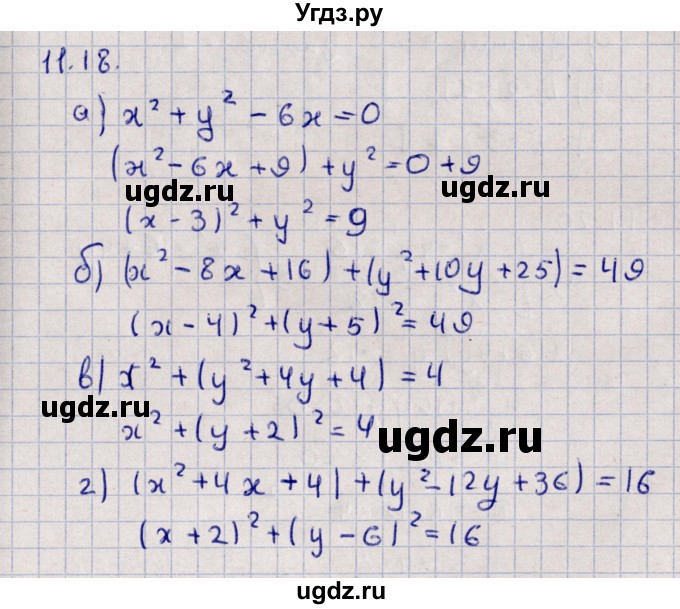 Угдз.ру
11.18.
а) x² + y² - 6x = 0
(x² - 6x + 9) + y² = 0 + 9
ugdz.ru ugdz.ru
(x - 3)² + y² = 9
б) (x² - 8x + 16) + (y² + 10y + 25) = 49
(x - 4)² + (y + 5)² = 49
в) x² + (y² + 4y + 4) = 4
ugdz.ru
x² + (y + 2)² = 4
ugdz.ru
г) (x² + 4x + 4) + (y² - 12y + 36) = 16
(x + 2)² + (y - 6)² = 16
ugdz.ru